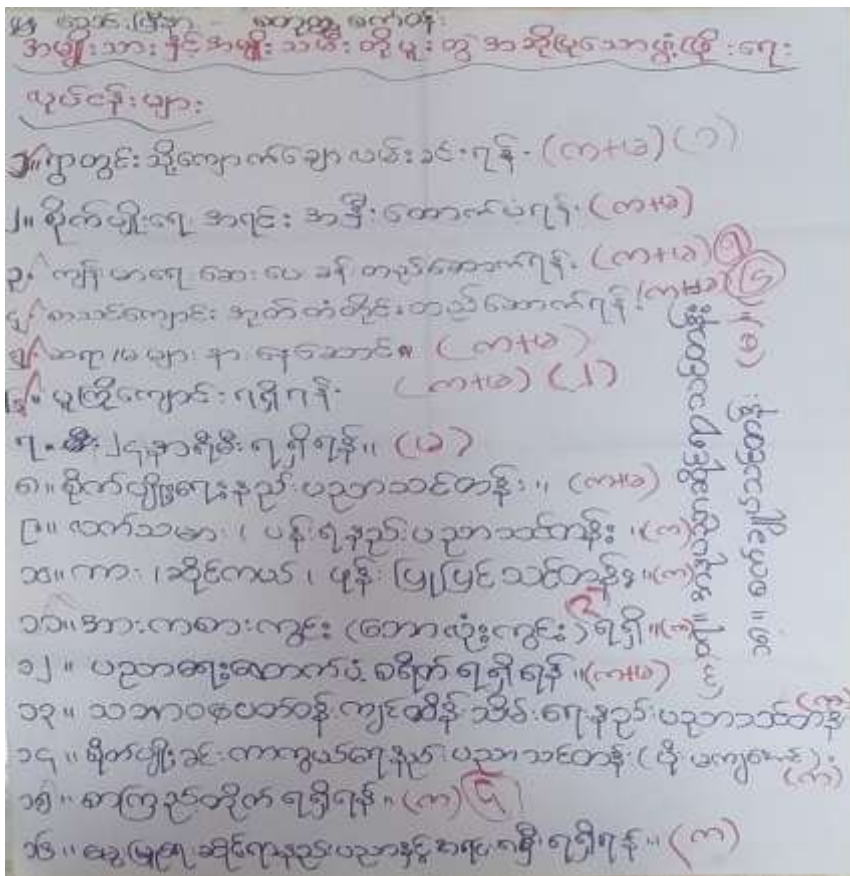 အမျိုးသား နှင့် အမျိုးသမီး တို့ပူးတွဲ အဆိုပြုသောဖွံ့ဖြိုးရေး
လုပ်ငန်းများ
၁။ ရွာတွင်းသို့ကျောက်ချောလမ်းခင်းရန်. (က+ခ) (၁)
၂။ စိုက်ပျိုးရေး အရင်း အနှီးထောက်ပံ့ရန်. (က+ခ)
၃. ကျန်းမာရေး ဆေးပေးခန်း တည်ဆောက်ရန်. (က+ခ)
၄. စာသင်ကျောင်း အုတ်တံတိုင်းတည်ဆောက်ရန်. (က+ခ)
၅. ဆရာ/မ များ နေဆောင်။ (က+ခ)
၆. မူကြိုကျောင်းရရှိရန်. (က+ခ) (၂)
၇. ၂၄ နာရီမီးရရှိရန်။ (ခ)
၈။ စိုက်ပျိုးရေးနည်းပညာသင်တန်း။ (က+ခ)
၉။ လက်သမား၊ ပန်းရံနည်းပညာသင်တန်း။ (က)
၁၀။ ကား၊ ဆိုင်ကယ်၊ ဖုန်း ပြုပြင်သင်တန်း။ (က)
၁၁။ အားကစားကွင်း (ဘောလုံးကွင်း) ရရှိ။ (က)
၁၂။ ပညာရေးထောက်ပံ့ စရိတ်ရရှိရန်။ (က+ခ)
၁၃။ သဘာဝပတ်ဝန်းကျင်ထိန်းသိမ်းရေးနည်းပညာသင်တန်း (က)
၁၄။ စိုက်ပျိုးခင်းကာကွယ်ရေးနည်းပညာသင်တန်း (ပိုးမကျအောင်) (က)
၁၅။ စာကြည့်တိုက်ရရှိရန်။ (က)
၁၆။ မွေးမြူရေးဆိုင်ရာနည်းပညာနှင့်အရင်းအနှီးရရှိရန်။ (က)